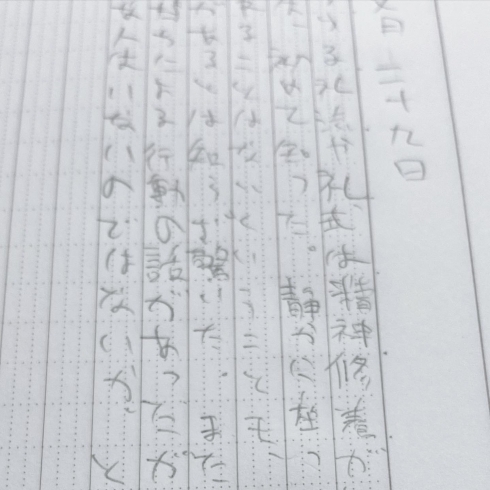 月二十九日
る礼法や礼式は精神修養が
初めて知った。静かに座っ
ることはないということも、
があるとは知らず驚いた。また
による行動の話があったが
はいないのではないか。と